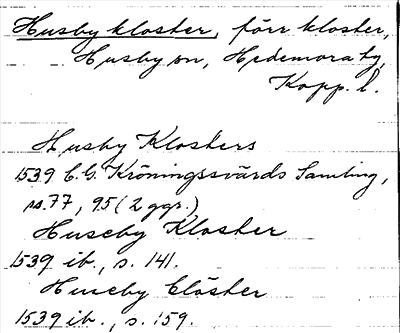 Husby kloster, förr kloster,
Husby sn, Hedemora tg,
Kopp. l.
Husby Klosters
1539 C.G. Kröningssvärds Samling,
ss. 77, 95 (2 ggr.)
Huseby Kloster
1539 ib., s. 141.
Huseby Clöster
1539 ib., s. 159.